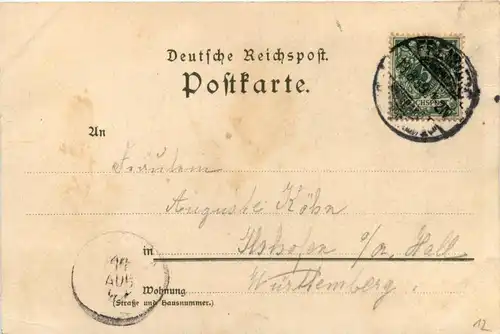 Deutsche Reichspost.
Postkarte.
An
Fräulein
Auguste Köhn
in Ilshofen a/n. Hall
Württemberg.
Wohnung
(Straße und Hausnummer.)
AUG
12